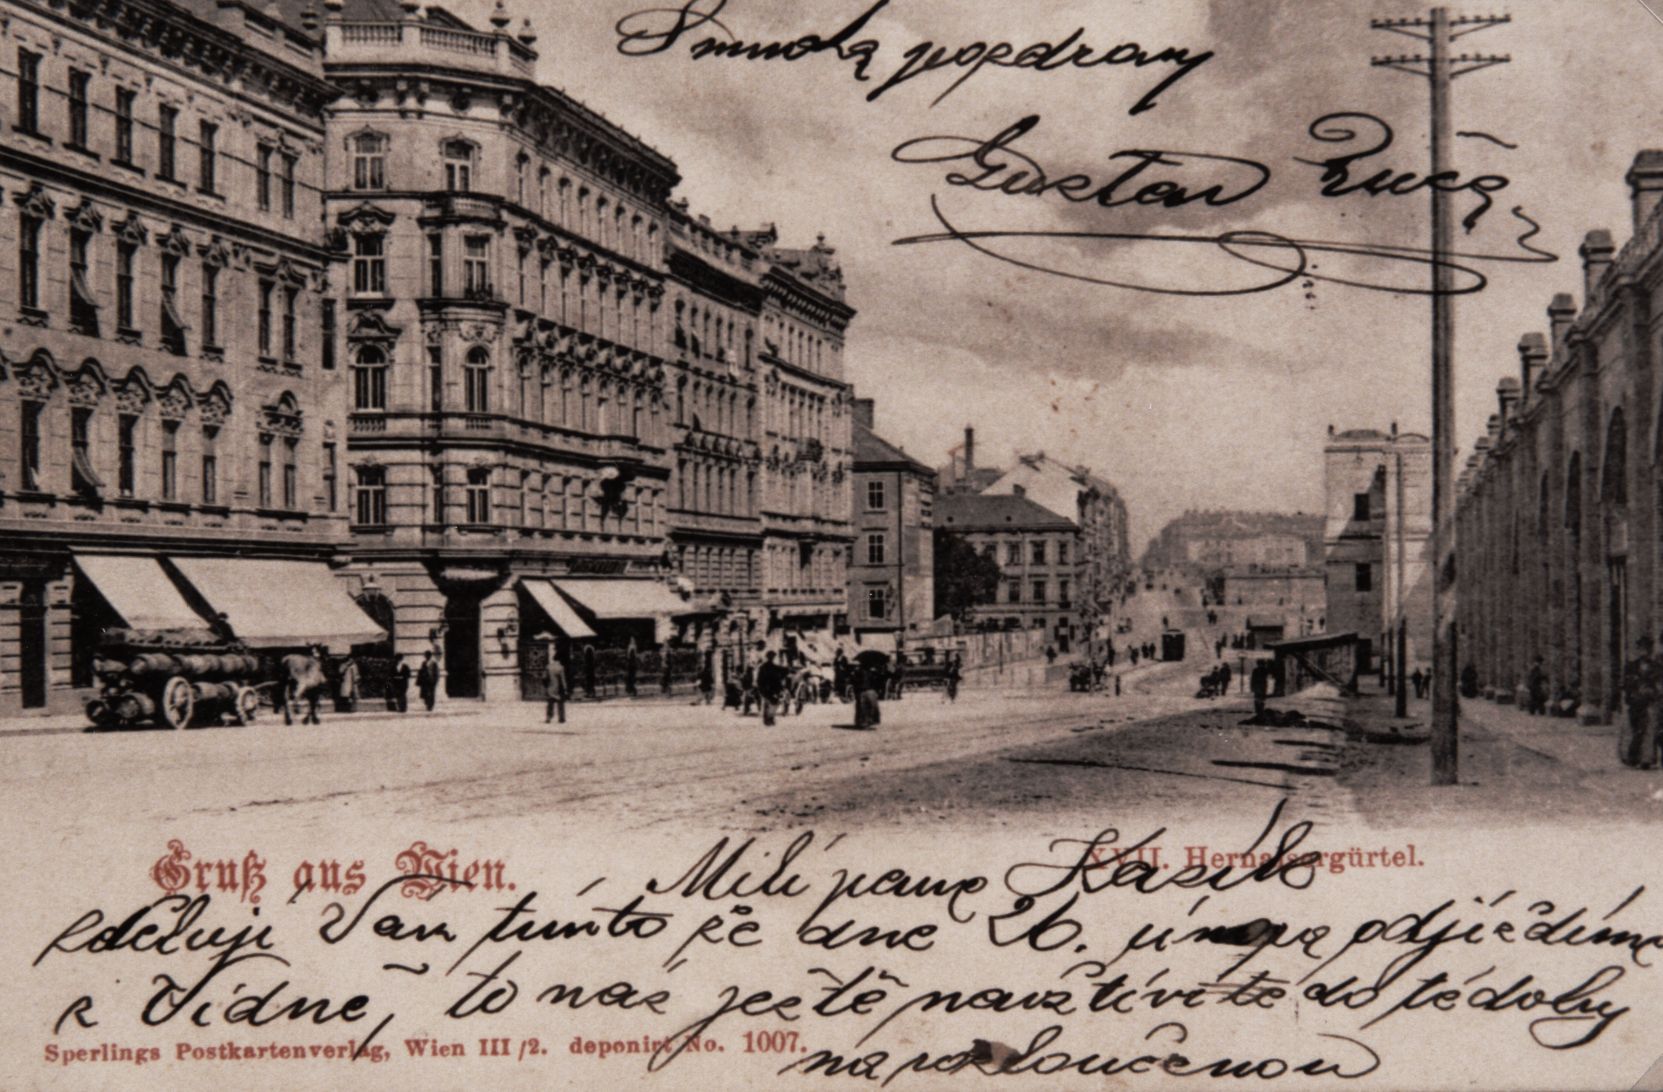 pozdravy
Gustav
Gruß aus Wien.
XVII. Hernalsergürtel.
Milý pane
sděluji Vám tímto že dne 26. února odjíždíme
z Vídně, to nás ještě navštívíte do té doby
na rozloučenou
Sperlings Postkartenverlag, Wien III/2. deponirt No. 1007.